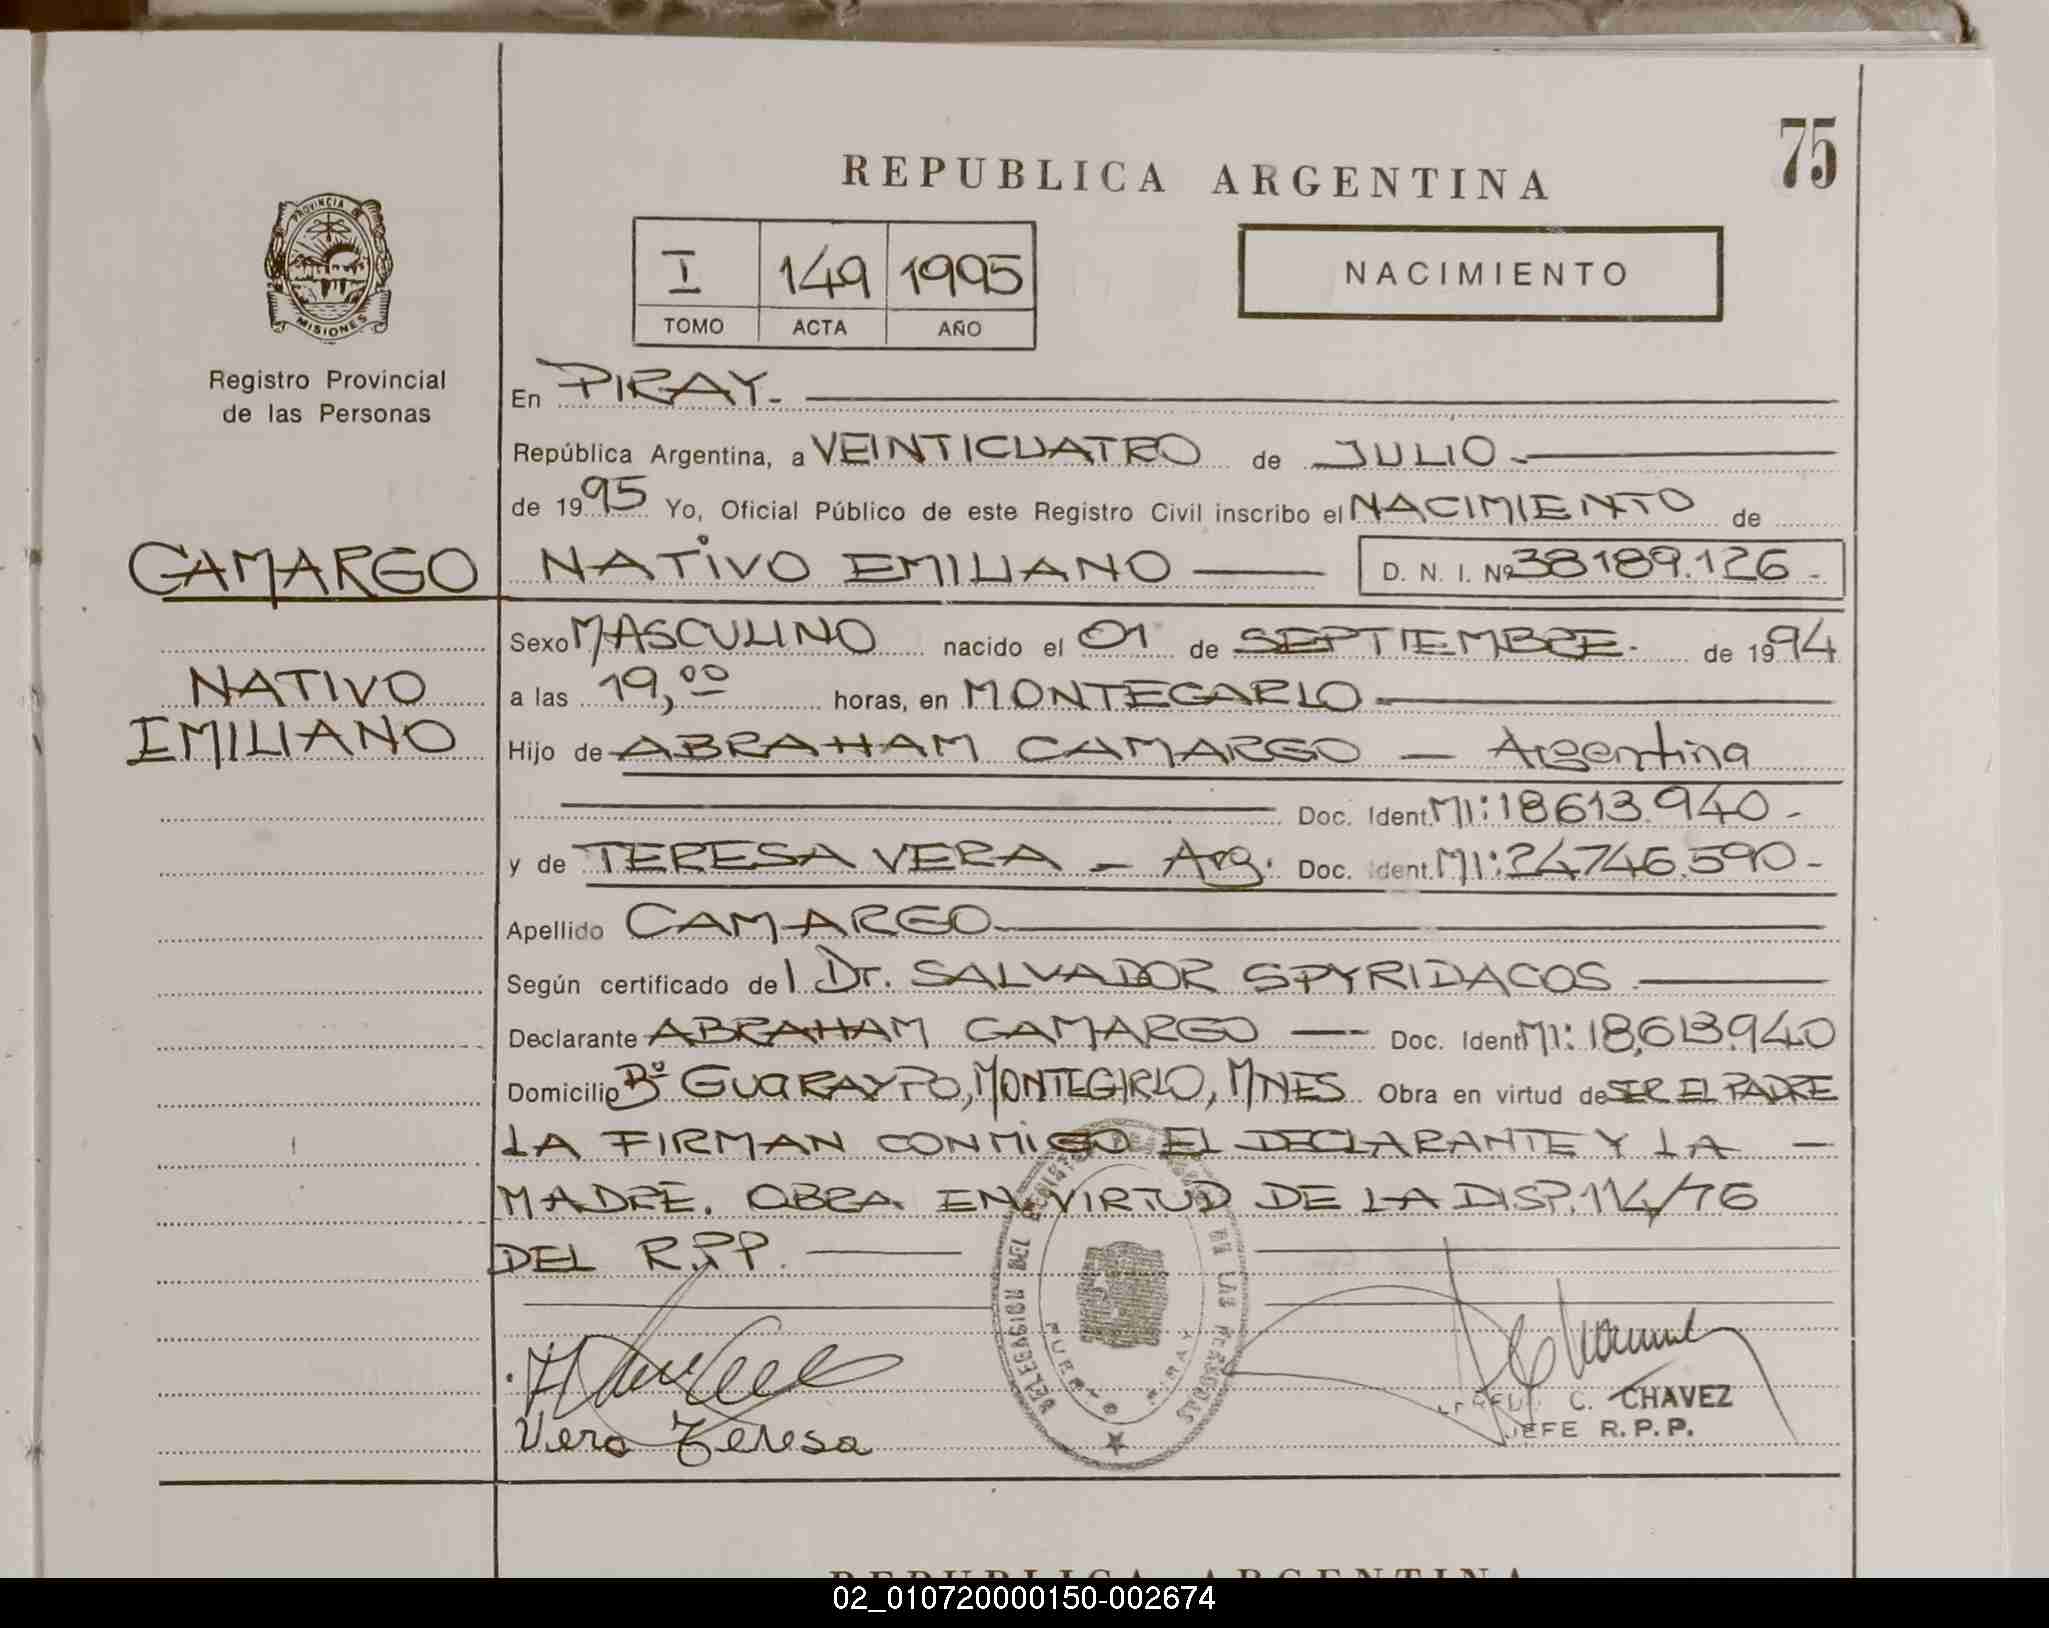 75
REPUBLICA ARGENTINA
PROVINCIA DE
MISIONES
I 149 1995
TOMO ACTA AÑO
NACIMIENTO
Registro Provincial
de las Personas
En PIRAY.
República Argentina, a VEINTICUATRO de JULIO
de 1995 Yo, Oficial Público de este Registro Civil inscribo el NACIMIENTO de
CAMARGO NATIVO EMILIANO — D. N. I. Nº 38189.126 -
NATIVO
EMILIANO
Sexo MASCULINO nacido el 01 de SEPTIEMBRE. de 1994
a las 19,00 horas, en MONTECARLO
Hijo de ABRAHAM CAMARGO — Argentina
Doc. Ident. MI: 18613.940 -
y de TERESA VERA — Arg. Doc. Ident. MI: 24746.590 -
Apellido CAMARGO
Según certificado del Dr. SALVADOR SPYRIDACOS
Declarante ABRAHAM CAMARGO — Doc. Ident MI: 18.613.940
Domicilio Bº GUARAYPO, MONTECARLO, MNES. Obra en virtud de SER EL PADRE
LA FIRMAN CONMIGO EL DECLARANTE Y LA —
MADRE. OBRA EN VIRTUD DE LA DISP. 114/76
DEL R.P.P.
DELEGACION DEL REGISTRO DE LAS PERSONAS
PUERTO PIRAY
Vera Teresa
C. CHAVEZ
JEFE R.P.P.
REPUBLICA ARGENTINA
02_010720000150-002674